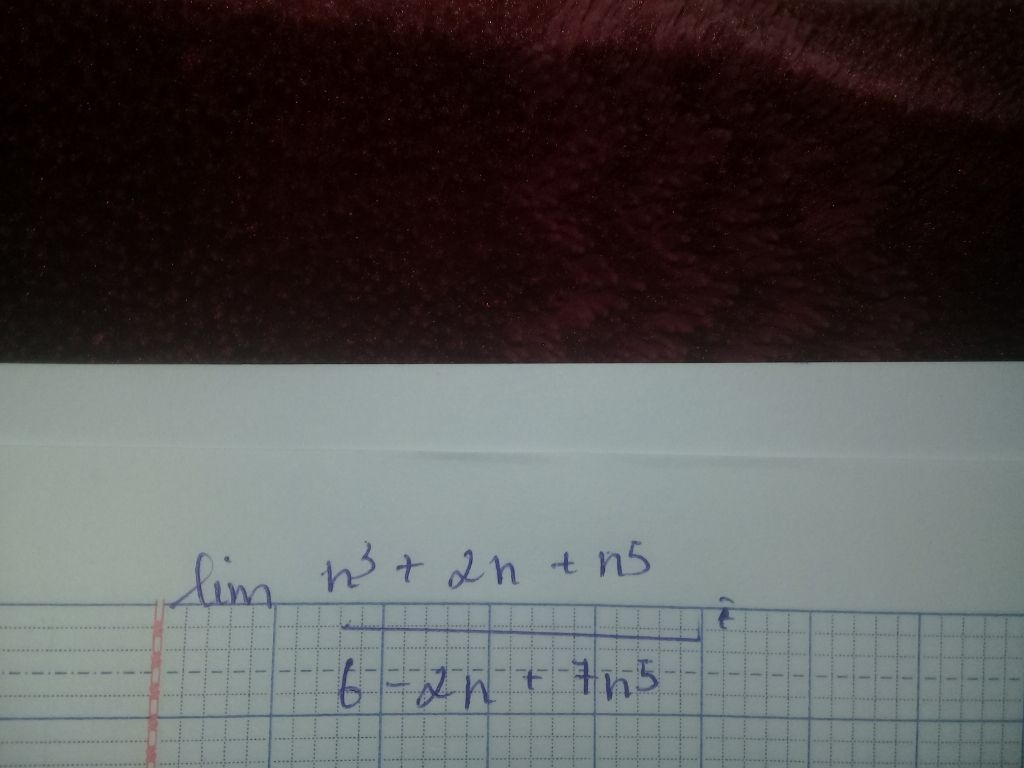 lim n³ + 2n + n5
6 - 2n + 7n5